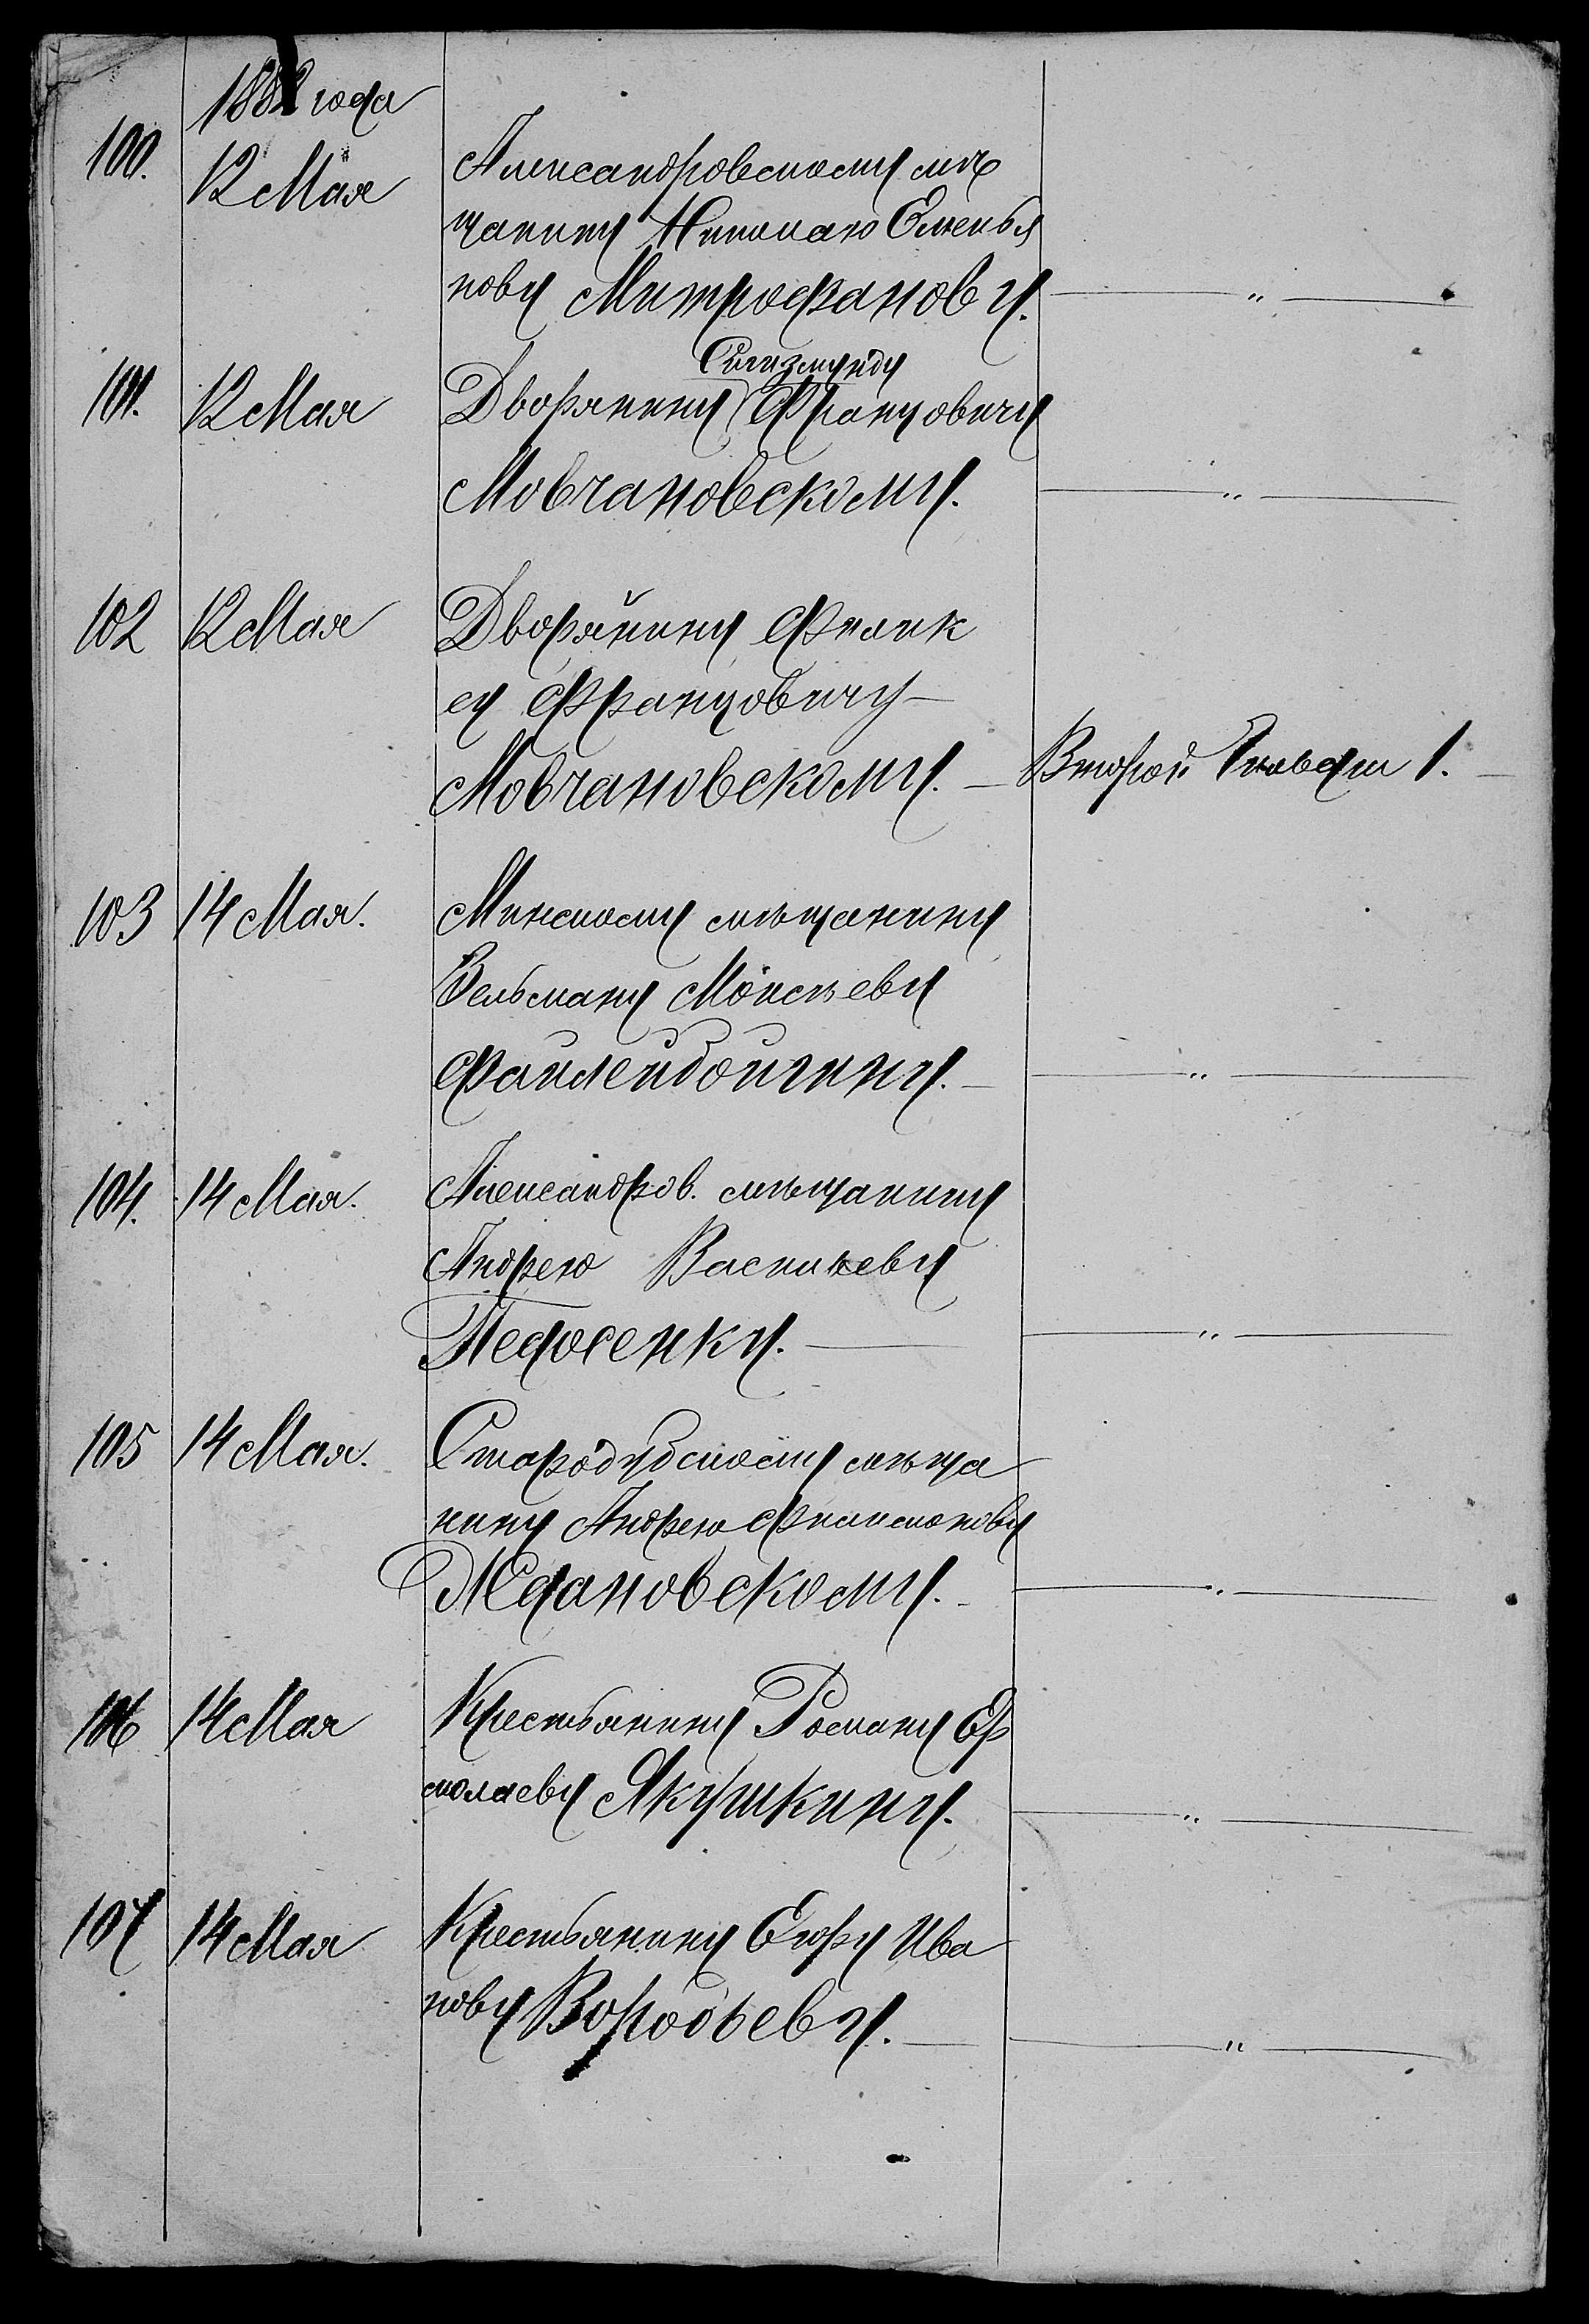 1882 года
100. 12 Мая Александровскому мѣ
щанину Николаю Емелья
нову Митрофанову. — " —
Сигизмунду
101. 12 Мая Дворянину Францовичу
Мовчановскому. — " —
102 12 Мая Дворянину Феликс
су Францовичу —
Мовчановскому. — Второй 1. —
103 14 Мая. Минскому мѣщанину
Зельману Моисѣеву
Файлейбойгину. — " —
104. 14 Мая. Александров. мѣщанину
Андрею Василиеву
Педосенку. — " —
105 14 Мая. Стародубскому мѣща
нину Андрею Филимонову
Ждановскому. — " —
106 14 Мая Крестьянину Роману Ер
молаеву Якушкину. — " —
107 14 Мая Крестьянину Егору Ива
нову Воробьеву. — " —